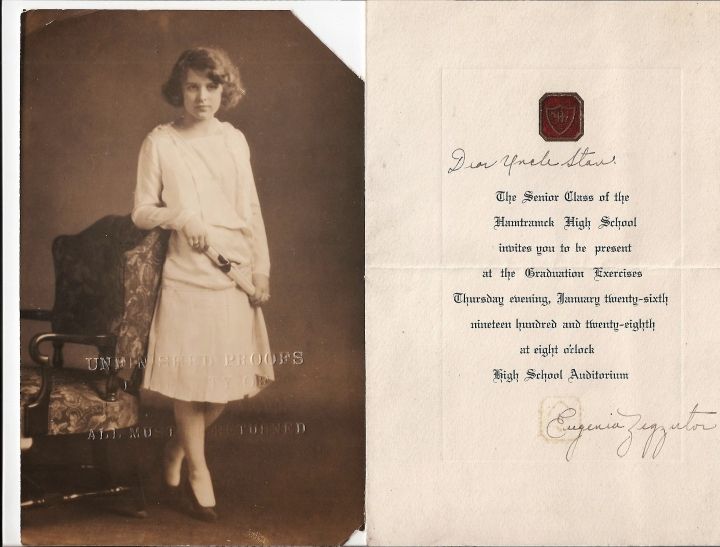 UNFINISHED PROOFS
ALL MUST RETURNED
Dear Uncle Stan:
The Senior Class of the
Hamtramck High School
invites you to be present
at the Graduation Exercises
Thursday evening, January twenty-sixth
nineteen hundred and twenty-eighth
at eight o'clock
High School Auditorium
Eugenia